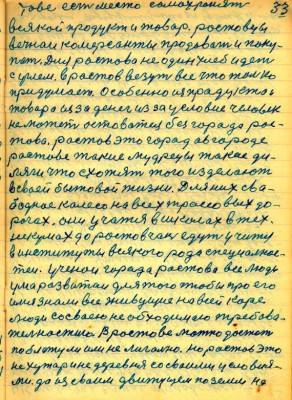 тове ест место сомохронят 33
всякой продукт и товар. ростовцы
вечнаи комерсанты продовать и поку-
пат. Для ростова не один хлеб идет
с углем, в ростов везут все что толко
придумает. Особенно из продукто и
товара из за денег из за условие человек
не можит оставатся без города рос-
това. ростов это город в городе
ростове такие мудрецы такее ди-
ляги что схотят того изделают
в своей бытовой жизни. Для них сва-
бодное колесо на всех трассовых до-
рогах. они учатия в школах в тех-
никумах до ростовчан едут учится
в институты всякого рода специалнос-
теи. ученои города ростова все люди
ума развитаи для того чтобы про его
имя знали все живущие на всей
люди со своею необходимаю требова-
телностию. В ростове можно достат
по блату или не лигално. но ростов это
не хутор и не деревня со своими условия-
ми. да из своим движущем по земли на